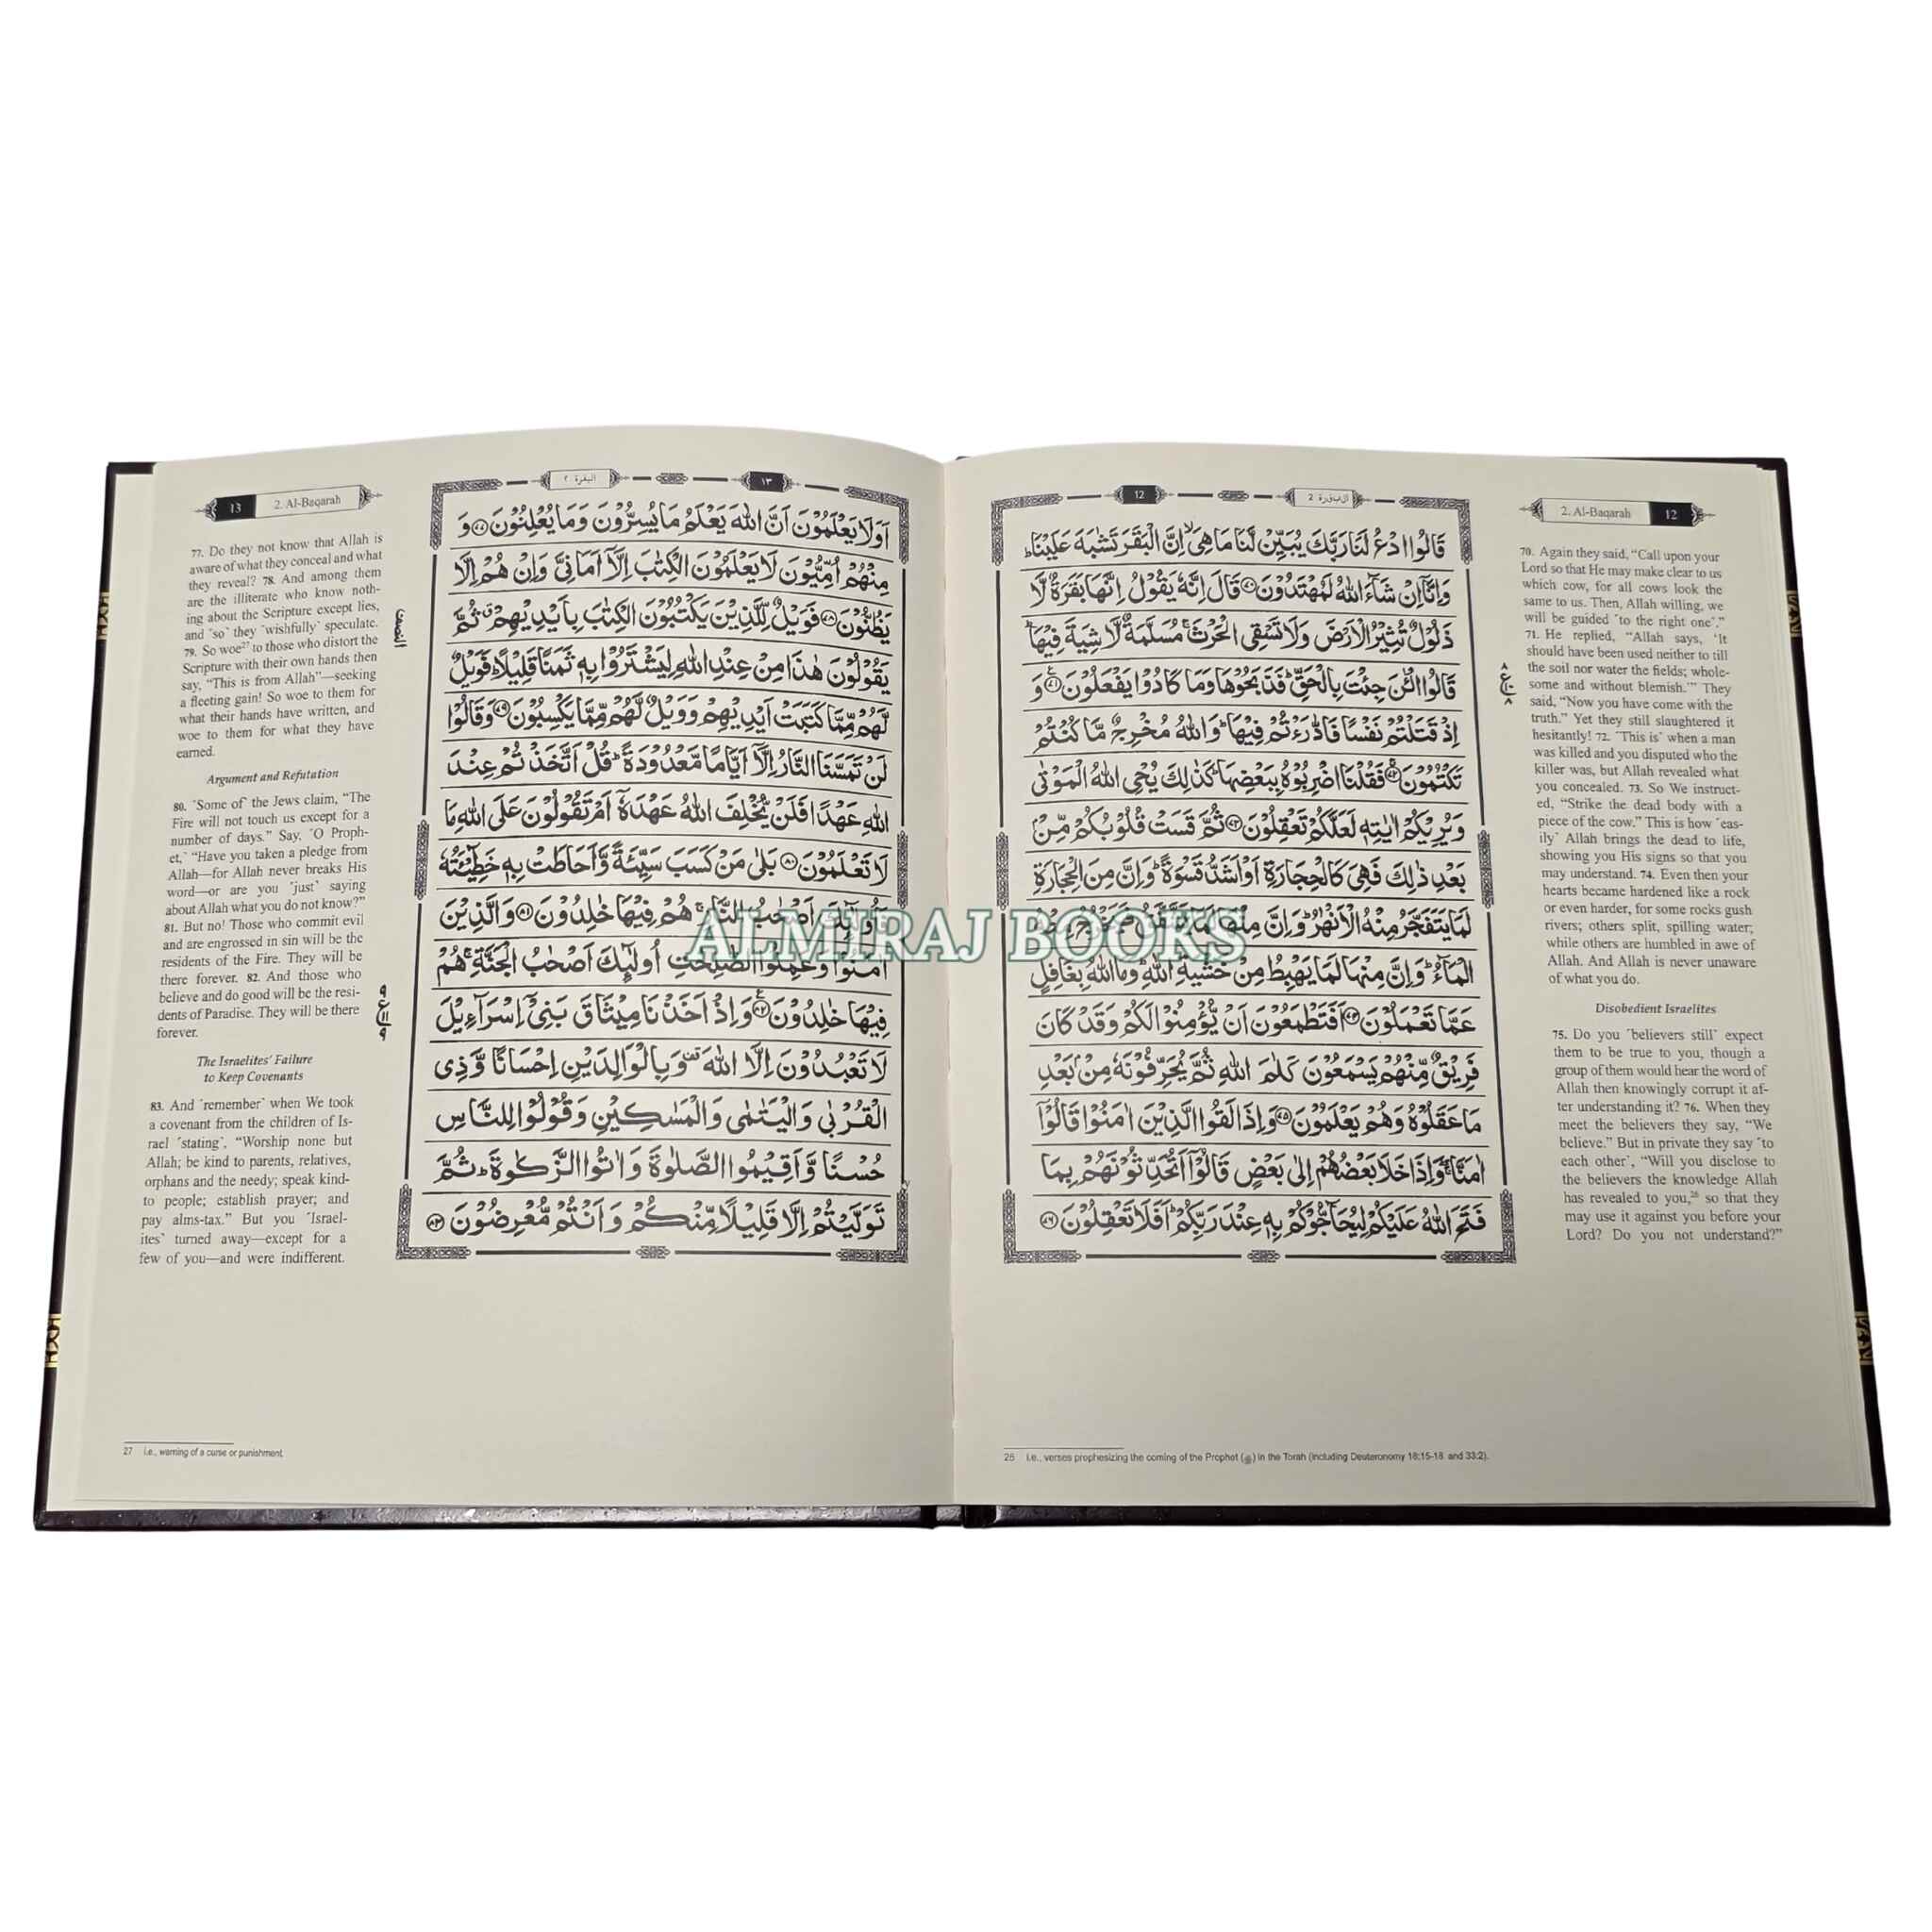 12
2 البقرة
2. Al-Baqarah
12
قَالُوا ادْعُ لَنَا رَبَّكَ يُبَيِّنْ لَّنَا مَا هِىَ ۙ اِنَّ الْبَقَرَ تَشٰبَهَ عَلَيْنَا ؕ
وَاِنَّاۤ اِنْ شَآءَ اللّٰهُ لَمُهْتَدُوْنَ ﴿۷۰﴾ قَالَ اِنَّهٗ يَقُوْلُ اِنَّهَا بَقَرَةٌ لَّا
ذَلُوْلٌ تُثِيْرُ الْاَرْضَ وَلَا تَسْقِى الْحَرْثَ ۚ مُسَلَّمَةٌ لَّا شِيَةَ فِيْهَا ؕ
قَالُوا الْـٰٔنَ جِئْتَ بِالْحَقِّ ؕ فَذَبَحُوْهَا وَمَا كَادُوْا يَفْعَلُوْنَ ﴿۷۱﴾ وَ
اِذْ قَتَلْتُمْ نَفْسًا فَادّٰرَءْتُمْ فِيْهَا ؕ وَاللّٰهُ مُخْرِجٌ مَّا كُنْتُمْ
تَكْتُمُوْنَ ﴿۷۲﴾ فَقُلْنَا اضْرِبُوْهُ بِبَعْضِهَا ؕ كَذٰلِكَ يُحْىِ اللّٰهُ الْمَوْتٰى
وَيُرِيْكُمْ اٰيٰتِهٖ لَعَلَّكُمْ تَعْقِلُوْنَ ﴿۷۳﴾ ثُمَّ قَسَتْ قُلُوْبُكُمْ مِّنْ
بَعْدِ ذٰلِكَ فَهِىَ كَالْحِجَارَةِ اَوْ اَشَدُّ قَسْوَةً ؕ وَاِنَّ مِنَ الْحِجَارَةِ
لَمَا يَتَفَجَّرُ مِنْهُ الْاَنْهٰرُ ؕ وَاِنَّ مِنْهَا لَمَا يَشَّقَّقُ فَيَخْرُجُ مِنْهُ
الْمَآءُ ؕ وَاِنَّ مِنْهَا لَمَا يَهْبِطُ مِنْ خَشْيَةِ اللّٰهِ ؕ وَمَا اللّٰهُ بِغَافِلٍ
عَمَّا تَعْمَلُوْنَ ﴿۷۴﴾ اَفَتَطْمَعُوْنَ اَنْ يُّؤْمِنُوْا لَكُمْ وَقَدْ كَانَ
فَرِيْقٌ مِّنْهُمْ يَسْمَعُوْنَ كَلٰمَ اللّٰهِ ثُمَّ يُحَرِّفُوْنَهٗ مِنْۢ بَعْدِ
مَا عَقَلُوْهُ وَهُمْ يَعْلَمُوْنَ ﴿۷۵﴾ وَاِذَا لَقُوا الَّذِيْنَ اٰمَنُوْا قَالُوْۤا
اٰمَنَّا ۖۚ وَاِذَا خَلَا بَعْضُهُمْ اِلٰى بَعْضٍ قَالُوْۤا اَتُحَدِّثُوْنَهُمْ بِمَا
فَتَحَ اللّٰهُ عَلَيْكُمْ لِيُحَآجُّوْكُمْ بِهٖ عِنْدَ رَبِّكُمْ ؕ اَفَلَا تَعْقِلُوْنَ ﴿۷۶﴾
70. Again they said, “Call upon your
Lord so that He may make clear to us
which cow, for all cows look the
same to us. Then, Allah willing, we
will be guided ˹to the right one˺.”
71. He replied, “Allah says, ‘It
should have been used neither to till
the soil nor water the fields; whole-
some and without blemish.’” They
said, “Now you have come with the
truth.” Yet they still slaughtered it
hesitantly! 72. ˹This is˺ when a man
was killed and you disputed who the
killer was, but Allah revealed what
you concealed. 73. So We instruct-
ed, “Strike the dead body with a
piece of the cow.” This is how ˹eas-
ily˺ Allah brings the dead to life,
showing you His signs so that you
may understand. 74. Even then your
hearts became hardened like a rock
or even harder, for some rocks gush
rivers; others split, spilling water;
while others are humbled in awe of
Allah. And Allah is never unaware
of what you do.
Disobedient Israelites
75. Do you ˹believers still˺ expect
them to be true to you, though a
group of them would hear the word of
Allah then knowingly corrupt it af-
ter understanding it? 76. When they
meet the believers they say, “We
believe.” But in private they say ˹to
each other˺, “Will you disclose to
the believers the knowledge Allah
has revealed to you,²⁶ so that they
may use it against you before your
Lord? Do you not understand?”
26 i.e., verses prophesizing the coming of the Prophet (ﷺ) in the Torah (including Deuteronomy 18:15-18 and 33:2).
13
2. Al-Baqarah
البقرة ٢
١٣
اَوَلَا يَعْلَمُوْنَ اَنَّ اللّٰهَ يَعْلَمُ مَا يُسِرُّوْنَ وَمَا يُعْلِنُوْنَ ﴿۷۷﴾ وَ
مِنْهُمْ اُمِّيُّوْنَ لَا يَعْلَمُوْنَ الْكِتٰبَ اِلَّاۤ اَمَانِىَّ وَاِنْ هُمْ اِلَّا
يَظُنُّوْنَ ﴿۷۸﴾ فَوَيْلٌ لِّلَّذِيْنَ يَكْتُبُوْنَ الْكِتٰبَ بِاَيْدِيْهِمْ ۗ ثُمَّ
يَقُوْلُوْنَ هٰذَا مِنْ عِنْدِ اللّٰهِ لِيَشْتَرُوْا بِهٖ ثَمَنًا قَلِيْلًا ؕ فَوَيْلٌ
لَّهُمْ مِّمَّا كَتَبَتْ اَيْدِيْهِمْ وَوَيْلٌ لَّهُمْ مِّمَّا يَكْسِبُوْنَ ﴿۷۹﴾ وَقَالُوْا
لَنْ تَمَسَّنَا النَّارُ اِلَّاۤ اَيَّامًا مَّعْدُوْدَةً ؕ قُلْ اَتَّخَذْتُمْ عِنْدَ
اللّٰهِ عَهْدًا فَلَنْ يُّخْلِفَ اللّٰهُ عَهْدَهٗۤ اَمْ تَقُوْلُوْنَ عَلَى اللّٰهِ مَا
لَا تَعْلَمُوْنَ ﴿۸۰﴾ بَلٰى مَنْ كَسَبَ سَيِّئَةً وَّاَحَاطَتْ بِهٖ خَطِيْٓئَتُهٗ
فَاُولٰٓئِكَ اَصْحٰبُ النَّارِ ۚ هُمْ فِيْهَا خٰلِدُوْنَ ﴿۸۱﴾ وَالَّذِيْنَ
اٰمَنُوْا وَعَمِلُوا الصّٰلِحٰتِ اُولٰٓئِكَ اَصْحٰبُ الْجَنَّةِ ۚ هُمْ
فِيْهَا خٰلِدُوْنَ ﴿۸۲﴾ وَاِذْ اَخَذْنَا مِيْثَاقَ بَنِىْۤ اِسْرَآءِيْلَ
لَا تَعْبُدُوْنَ اِلَّا اللّٰهَ ۟ وَبِالْوَالِدَيْنِ اِحْسَانًا وَّذِى
الْقُرْبٰى وَالْيَتٰمٰى وَالْمَسٰكِيْنِ وَقُوْلُوْا لِلنَّاسِ
حُسْنًا وَّاَقِيْمُوا الصَّلٰوةَ وَاٰتُوا الزَّكٰوةَ ؕ ثُمَّ
تَوَلَّيْتُمْ اِلَّا قَلِيْلًا مِّنْكُمْ وَاَنْتُمْ مُّعْرِضُوْنَ ﴿۸۳﴾
النصف
77. Do they not know that Allah is
aware of what they conceal and what
they reveal? 78. And among them
are the illiterate who know noth-
ing about the Scripture except lies,
and ˹so˺ they ˹wishfully˺ speculate.
79. So woe²⁷ to those who distort the
Scripture with their own hands then
say, “This is from Allah”—seeking
a fleeting gain! So woe to them for
what their hands have written, and
woe to them for what they have
earned.
Argument and Refutation
80. ˹Some of˺ the Jews claim, “The
Fire will not touch us except for a
number of days.” Say, ˹O Proph-
et,˺ “Have you taken a pledge from
Allah—for Allah never breaks His
word—or are you ˹just˺ saying
about Allah what you do not know?”
81. But no! Those who commit evil
and are engrossed in sin will be the
residents of the Fire. They will be
there forever. 82. And those who
believe and do good will be the resi-
dents of Paradise. They will be there
forever.
The Israelites’ Failure
to Keep Covenants
83. And ˹remember˺ when We took
a covenant from the children of Is-
rael ˹stating˺, “Worship none but
Allah; be kind to parents, relatives,
orphans and the needy; speak kind-
to people; establish prayer; and
pay alms-tax.” But you ˹Israel-
ites˺ turned away—except for a
few of you—and were indifferent.
27 i.e., warning of a curse or punishment.
ALMIRAJ BOOKS